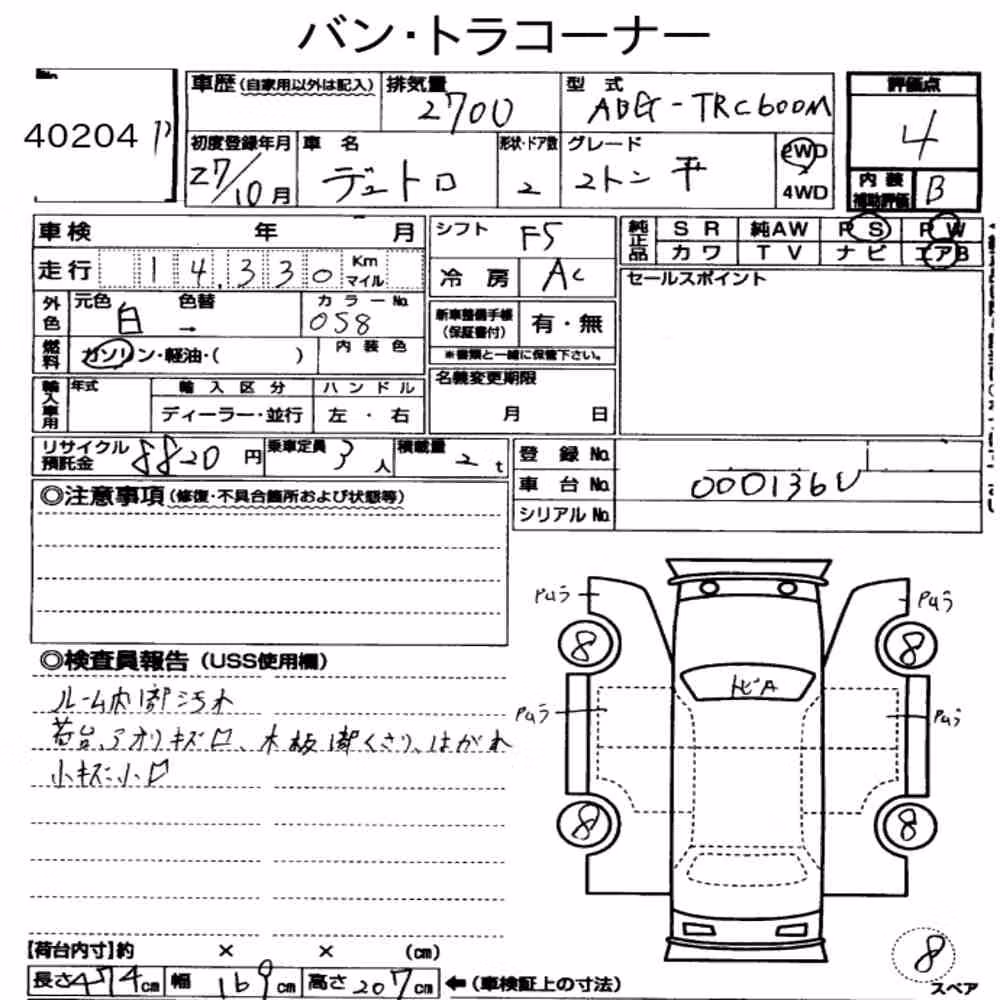 バン・トラコーナー
No.
40204
車歴 (自家用以外は記入) 排気量 2700 型式 ABG-TRC600M 評価点 4
初度登録年月 27/10月 車名 デュトロ 形状・ドア数 2 グレード 2トン 平 2WD 4WD
内装補助評価 B
車検 年 月 シフト F5 純正品 SR 純AW PS PW
カワ TV ナビ エアB
走行 14,330 Km マイル 冷房 AC セールスポイント
外色 元色 白 色替 → カラーNo. 058
新車整備手帳 (保証書付) 有・無
燃料 ガソリン・軽油・( ) 内装色
※書類と一緒に保管下さい。
輸入車用 年式 輸入区分 ハンドル 名義変更期限
ディーラー・並行 左・右 月 日
リサイクル預託金 8820円 乗車定員 3人 積載量 2t
登録No.
車台No. 0001360
シリアルNo.
◎注意事項 (修復・不具合箇所および状態等)
PWラ PWラ
8 8
◎検査員報告 (USS使用欄)
ルーム内部汚れ
トビA
PWラ PWラ
荷台、アオリキズロ、木板部くさり、はがれ
小キズ小凹
8 8
【荷台内寸】約 × × (cm)
長さ474cm 幅 169cm 高さ207cm ←(車検証上の寸法)
8
スペア